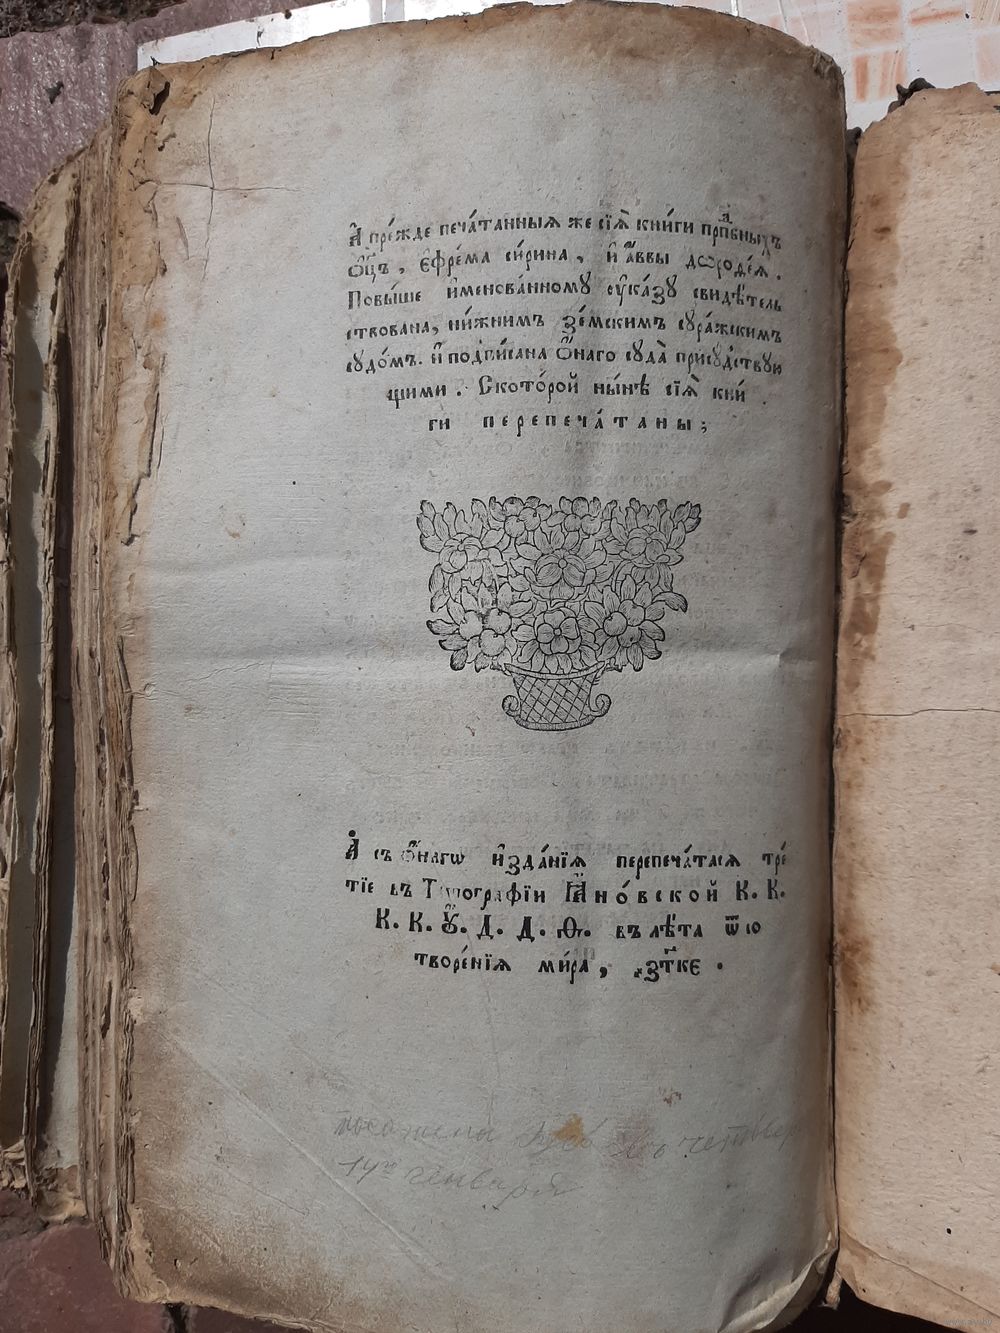 А҆ пре́жде печа́танныѧ же сїѧ̀ кни́ги прпⷣбныхъ
ѻ҆ц҃ъ, є҆фре́ма си́рина, и҆ а҆́ввы дѡроѳе́ѧ.
Повы́ше и҆менова́нному ᲂу҆ка́зу свидѣ́тель
ствована, ни́жнимъ зе́мскимъ сура́жскимъ
судо́мъ. и҆ подпи́сана ѻ҆́наго суда̀ прису́дствую
щими. Ското́рой ны́нѣ сїѧ̀ кни́
ги перепеча́таны;
А҆ съ ѻ҆́нагѡ и҆зда́нїѧ перепеча́тасѧ тре́
тїе въ Тѷпографїи Ꙗ҆но́вской К. К.
К. К. Ꙋ҆. Д. Д. Ѳ. въ лѣ́та ѿ ю
творе́нїѧ ми́ра, ҂зт҃ке.
14го генваря